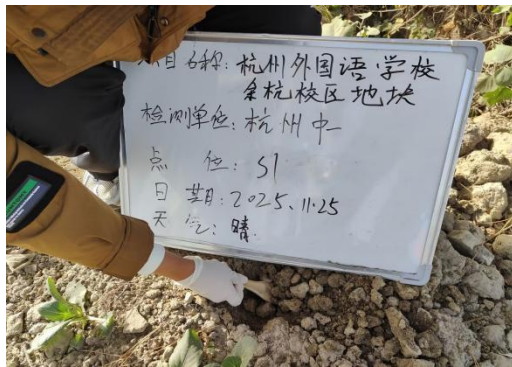 项目名称:杭州外国语学校
余杭校区地块
检测单位:杭州中一
点 位:S1
日 期:2025.11.25
天 气:晴